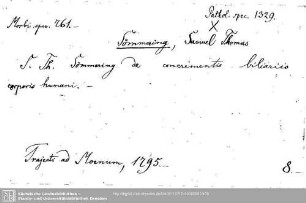 Pathol. spec. 1329.
Morbi. spec. 761.
X
Sömmering, Samuel Thomas
S. Th. Sömmering de concrementis biliariis
corporis humani. –
Trajecti ad Moenum, 1795.
8.
Sächsische Landesbibliothek -
Staats- und Universitätsbibliothek Dresden